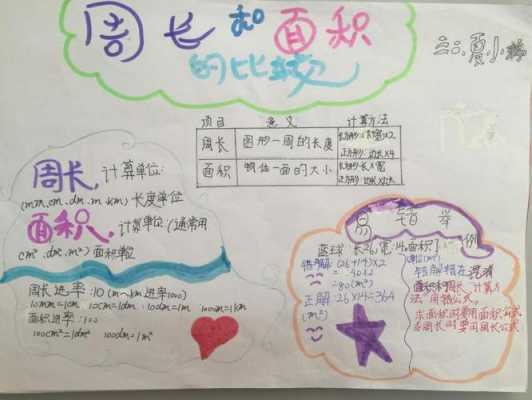 周长和面积
的比较
三二.夏小婷
项目 意义 计算方法
周长 图形一周的长度 长方形:(长+宽)×2
正方形:边长×4
面积 物体一面的大小 长方形:长×宽
正方形:边长×边长
周长,计算单位:
(mm.cm.dm.m.km)长度单位
面积,计算单位(通常用
cm².dm².m²)面积单位
周长进率:10(m~km进率1000)
10mm=1cm 10cm=1dm 10dm=1m 1000m=1km
面积进率:100
100cm²=1dm² 100dm²=1m²
易错举例
篮球 长26,宽14,面积
错解:(26+14)×2
=40×2
=80(m²)
正解 26×14=364
(m²)
错解错在混淆
面积和周长,计算方
法,用错公式。
求面积时要用面积公式
求周长时要用周长公式